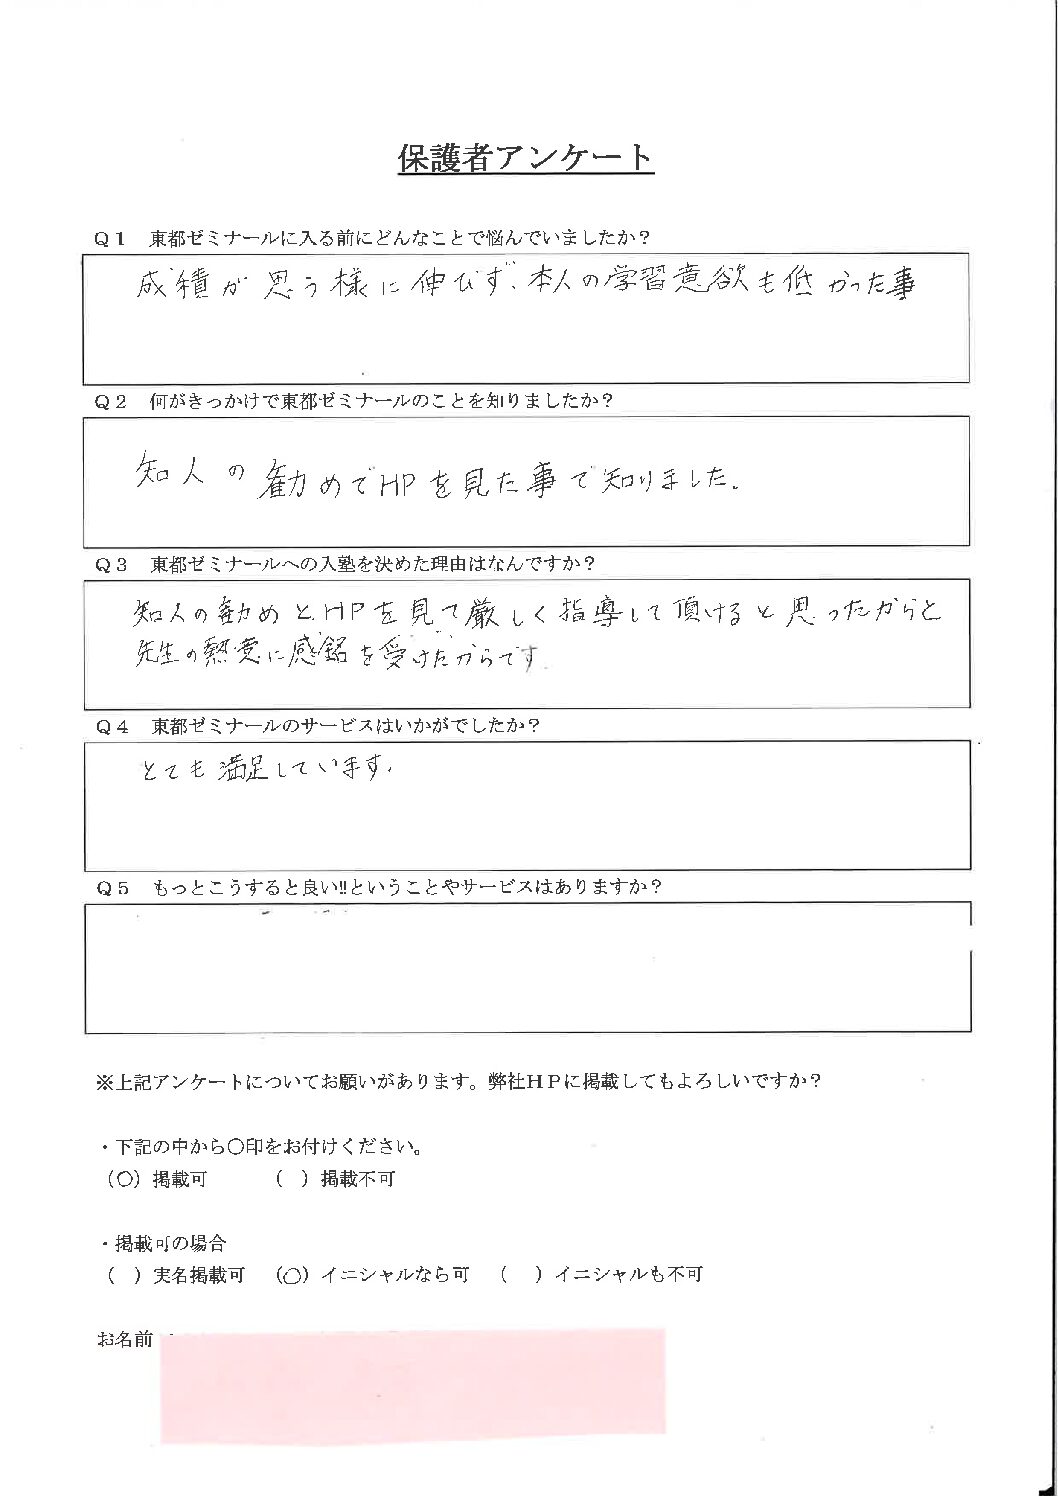 保護者アンケート
Q1 東都ゼミナールに入る前にどんなことで悩んでいましたか?
成績が思う様に伸びず、本人の学習意欲も低かった事
Q2 何がきっかけで東都ゼミナールのことを知りましたか?
知人の勧めでHPを見た事で知りました。
Q3 東都ゼミナールへの入塾を決めた理由はなんですか?
知人の勧めと、HPを見て厳しく指導して頂けると思ったからと
先生の熱意に感銘を受けたからです
Q4 東都ゼミナールのサービスはいかがでしたか?
とても満足しています。
Q5 もっとこうすると良い!!ということやサービスはありますか?
※上記アンケートについてお願いがあります。弊社HPに掲載してもよろしいですか?
・下記の中から○印をお付けください。
(○)掲載可 ( )掲載不可
・掲載可の場合
( )実名掲載可 (○)イニシャルなら可 ( )イニシャルも不可
お名前